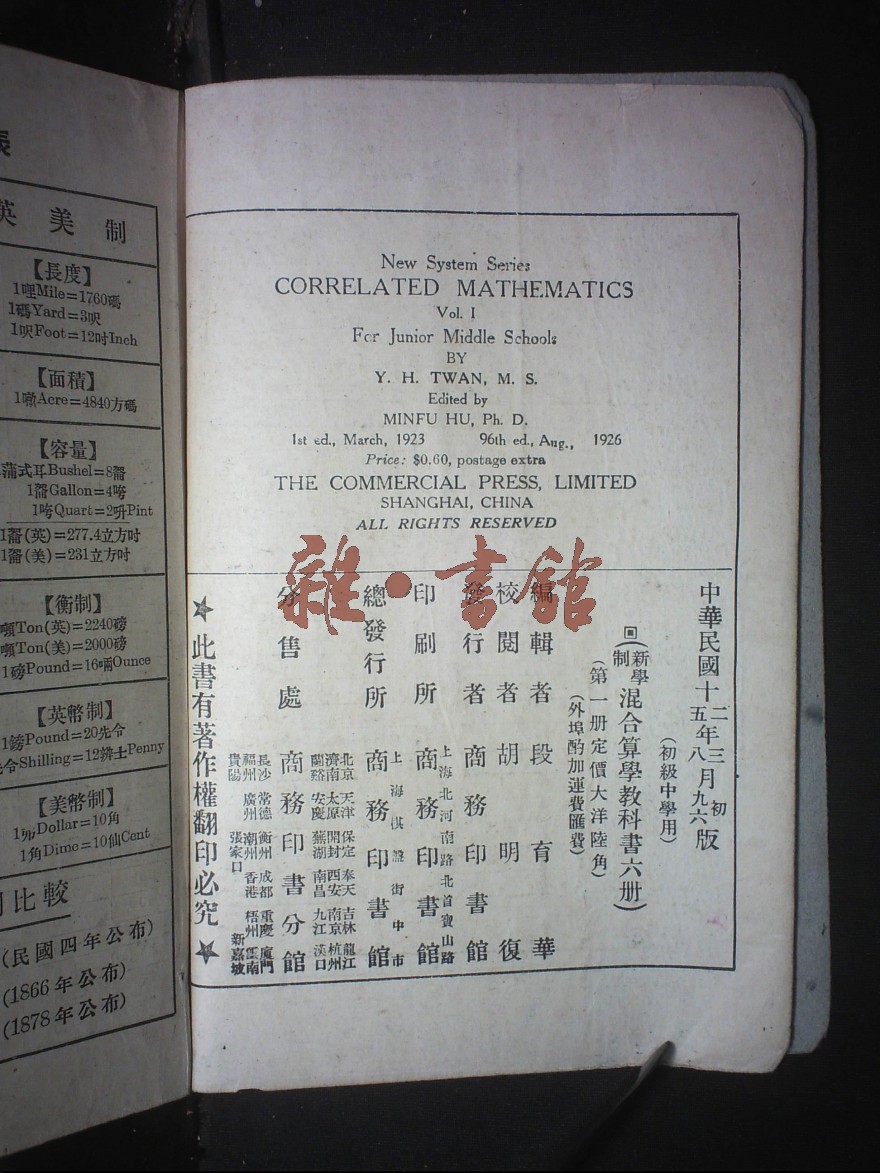 英美制
【長度】
1哩Mile=1760碼
1碼Yard=3呎
1呎Foot=12吋Inch
【面積】
1噉Acre=4840方碼
【容量】
蒲式耳Bushel=8嗧
1嗧Gallon=4呏
1呏Quart=2吘Pint
1嗧(英)=277.4立方吋
1嗧(美)=231立方吋
【衡制】
噸Ton(英)=2240磅
噸Ton(美)=2000磅
1磅Pound=16啢Ounce
【英幣制】
1鎊Pound=20先令
令Shilling=12辨士Penny
【美幣制】
Dollar=10角
1角Dime=10仙Cent
比較
(民國四年公布)
(1866年公布)
(1878年公布)
New System Series
CORRELATED MATHEMATICS
Vol. I
For Junior Middle Schools
BY
Y. H. TWAN, M. S.
Edited by
MINFU HU, Ph. D.
1st ed., March, 1923 96th ed., Aug., 1926
Price: $0.60, postage extra
THE COMMERCIAL PRESS, LIMITED
SHANGHAI, CHINA
ALL RIGHTS RESERVED
雜·書館
中華民國十二年三月初版
五年八月九六版
(初級中學用)
(新學制混合算學教科書六册)
(第一册定價大洋陸角)
(外埠酌加運費匯費)
編輯者 段育華
校閱者 胡明復
發行者 商務印書館
印刷所 上海北河南路北首寶山路 商務印書館
總發行所 上海棋盤街中市 商務印書館
分售處 商務印書分館
北京 天津 保定 奉天 吉林 龍江
濟南 太原 開封 西安 南京 杭州
蘭谿 安慶 蕪湖 南昌 九江 漢口
長沙 常德 衡州 成都 重慶 廈門
福州 廣州 潮州 香港 梧州 雲南
貴陽 張家口 新嘉坡
★此書有著作權翻印必究★